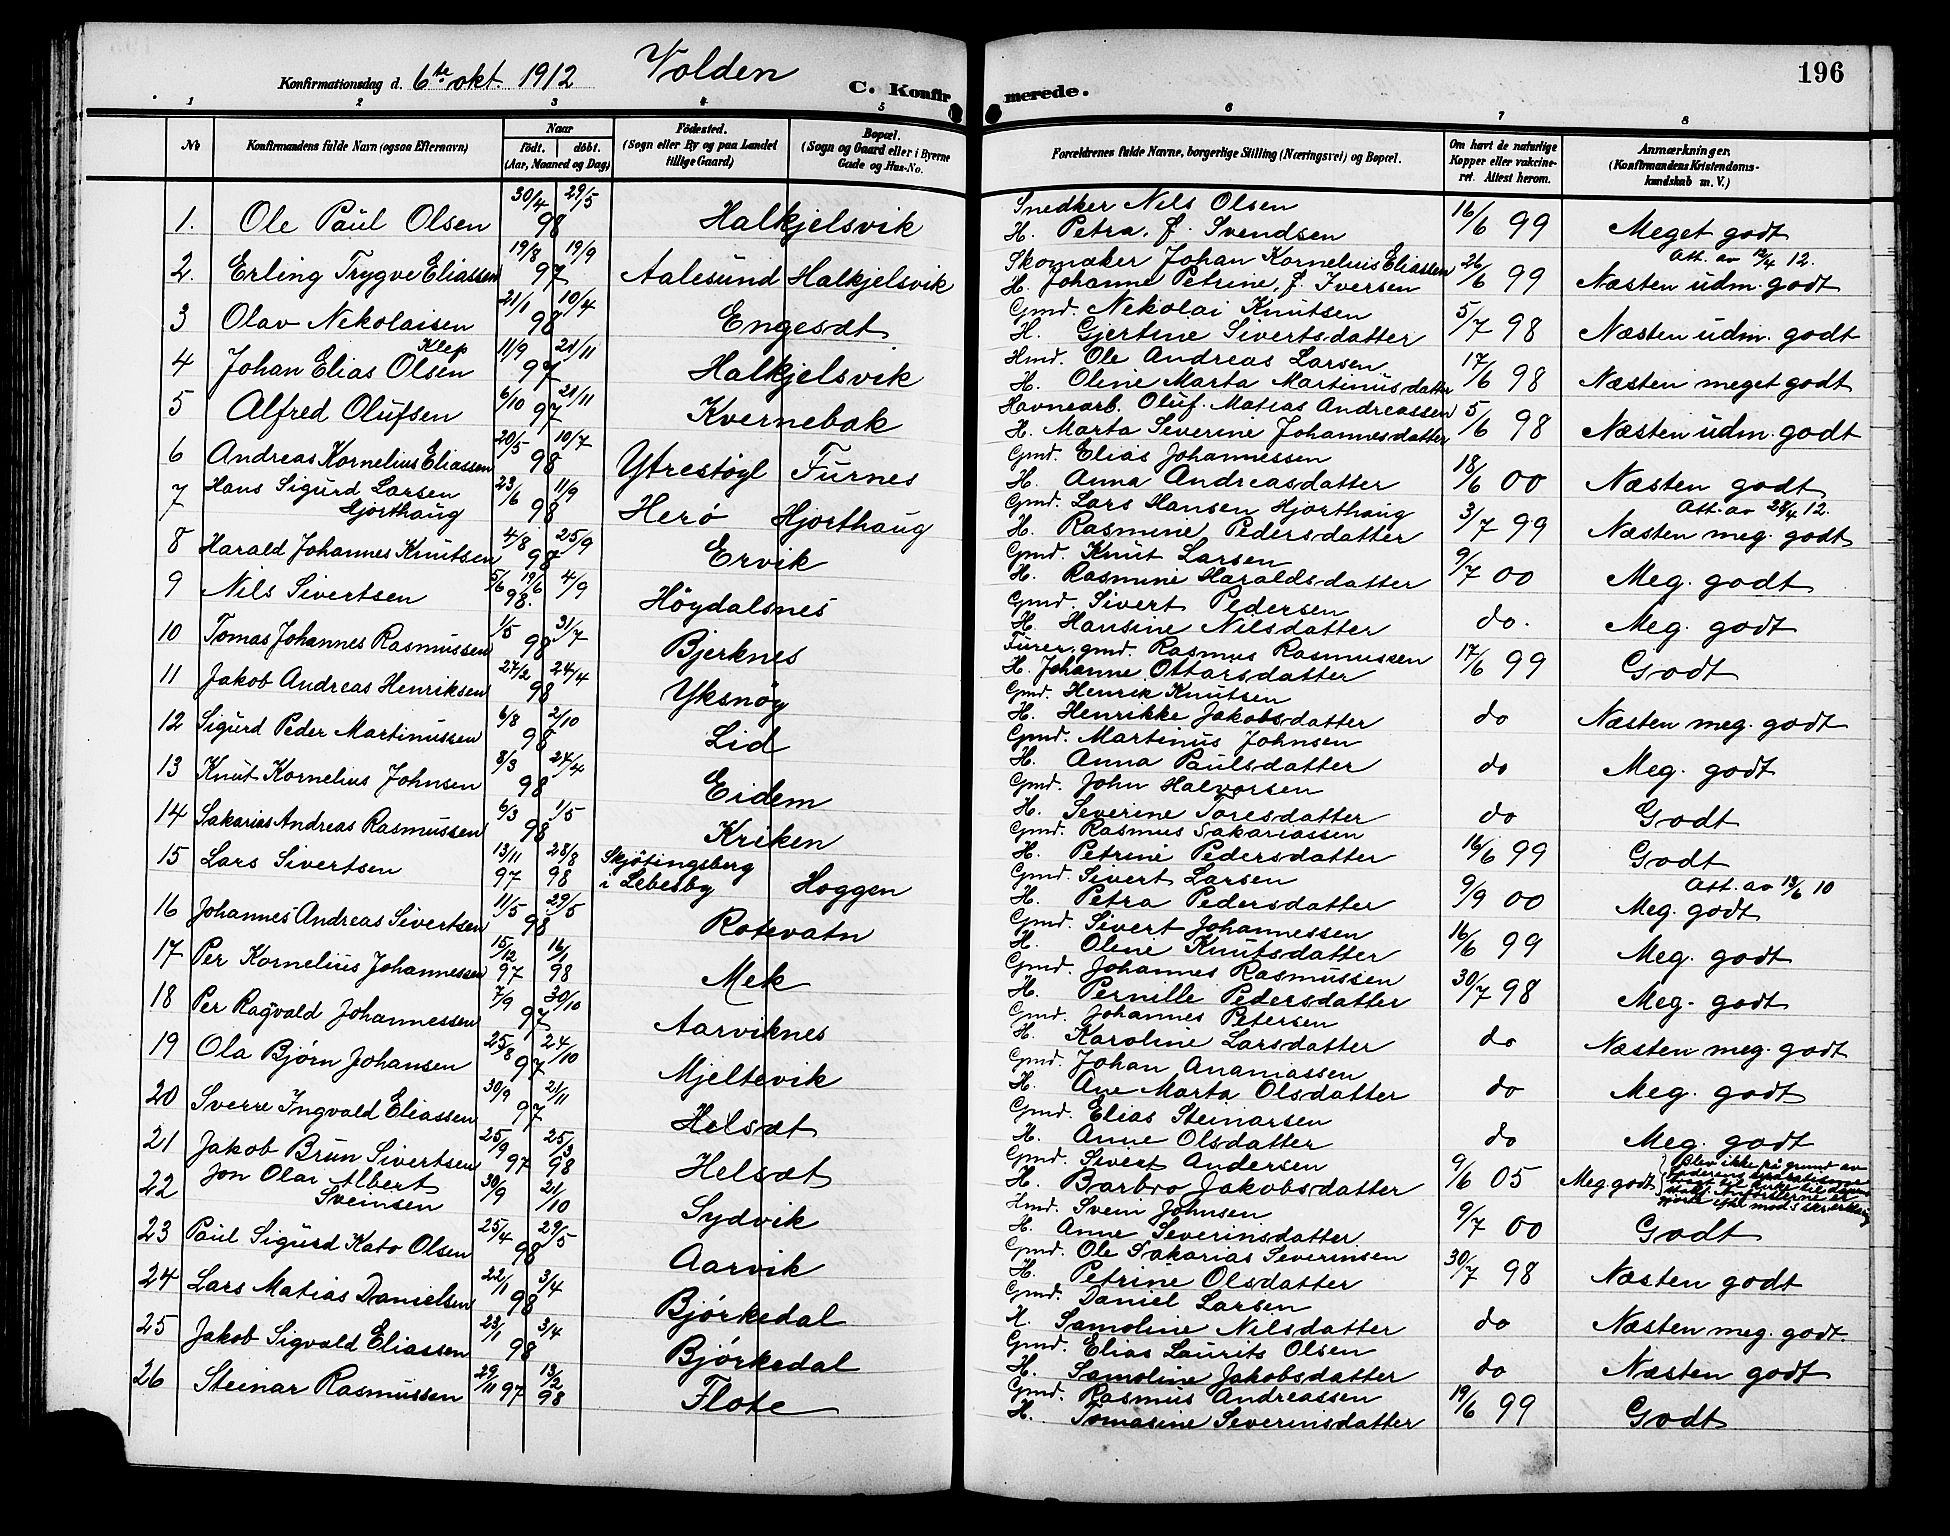 Konfirmationsdag d. 6te okt. 1912 Volden
C. Konfirmerede.
196
1 2 3 4 5 6 7 8
No
Konfirmandens fulde Navn (ogsaa Efternavn)
Naar
födt. döbt.
(Aar, Maaned og Dag)
Födested.
(Sogn eller By og paa Landet
tillige Gaard)
Bopæl.
(Sogn og Gaard eller i Byerne
Gade og Hus-No.
Forældrenes fulde Navne, borgerlige Stilling (Næringsvei) og Bopæl.
Om havt de naturlige
Kopper eller vakcine-
ret. Attest herom.
Anmærkninger,
(Konfirmandens Kristendoms-
kundskab m. V.)
1. Ole Paul Olsen 30/4 29/5 98 Halkjelsvik Snedker Nils Olsen
H. Petra, f. Svendsen 16/6 99 Meget godt
2. Erling Trygve Eliassen 19/8 19/9 97 Aalesund Halkjelsvik Skomaker Johan Kornelius Eliassen
H. Johanne Petrine, f. Iversen 26/6 99 Att. av 12/4 12. Næsten udm. godt
3 Olav Nekolaisen 21/1 10/4 98 Engesæt Gmd. Nekolai Knutsen
H. Gjertine Sivertsdatter 5/7 98 Næsten udm. godt
4 Johan Elias Olsen Klep 11/9 21/11 97 Halkjelsvik Hmd. Ole Andreas Larsen
H. Oline Marta Martinusdatter 17/6 98 Næsten meget godt
5 Alfred Olufsen 6/10 21/11 97 Kvernebak Havnearb. Oluf Matias Andreassen
H. Marta Severine Johannesdatter 5/6 98 Næsten udm. godt
6 Andreas Kornelius Eliassen 20/5 10/7 98 Ytrestøyl Furnes Gmd. Elias Johannessen
H. Anna Andreasdatter 18/6 00 Næsten godt
7 Hans Sigurd Larsen
Hjorthaug 23/6 11/9 98 Herø Hjorthaug Gmd. Lars Hansen Hjorthaug
H. Rasmine Pedersdatter 3/7 99 Att. av 23/4 12. Næsten meg. godt
8 Harald Johannes Knutsen 4/8 25/9 98 Ervik Gmd. Knut Larsen
H. Rasmine Haraldsdatter 9/7 00 Meg. godt
9 Nils Sivertsen 5/6 19/6 98. 4/9 Höydalsnes Gmd. Sivert Pedersen
H. Hansine Nilsdatter do. Meg. godt
10 Tomas Johannes Rasmussen 1/5 31/7 98 Bjerknes Furer, gmd. Rasmus Rasmussen
H. Johanne Ottarsdatter 17/6 99 Godt
11 Jakob Andreas Henriksen 27/2 24/4 98 Yksnøy Gmd. Henrik Knutsen
H. Henrikke Jakobsdatter do Næsten meg. godt
12 Sigurd Peder Martinussen 6/8 2/10 98 Lid Gmd. Martinus Johnsen
H. Anna Paulsdatter do Meg. godt
13 Knut Kornelius Johnsen 8/3 24/4 98 Eidem Gmd. John Halvorsen
H. Severine Toresdatter do Godt
14 Sakarias Andreas Rasmussen 6/3 1/5 98 Kriken Gmd. Rasmus Sakariassen
H. Petrine Pedersdatter 16/6 99 Godt
15 Lars Sivertsen 13/11 97 28/8 98 Skjötingsberg
i Lebesby Hoggen Gmd. Sivert Larsen
H. Petra Pedersdatter 9/9 00 Att. av 13/6 10 Meg. godt
16 Johannes Andreas Sivertsen 11/5 29/5 98 Rotevatn Gmd. Sivert Johannessen
H. Oline Knutsdatter 16/6 99 Meg. godt
17 Per Kornelius Johannessen 15/12 97 16/1 98 Mek Gmd. Johannes Rasmussen
H. Pernille Pedersdatter 30/7 98 Meg. godt
18 Per Ragvald Johannessen 7/9 30/10 97 Aarviknes Gmd. Johannes Petersen
H. Karoline Larsdatter do Næsten meg. godt
19 Ola Bjørn Johansen 25/8 24/10 97 Mjeltevik Gmd. Johan Ananiassen
H. Ane Marta Olsdatter do Meg. godt
20 Sverre Ingvald Eliassen 30/9 21/11 97 Helsæt Gmd. Elias Steinarsen
H. Anne Olsdatter do Meg. godt
21 Jakob Brun Sivertsen 25/9 97 25/3 98 Helsæt Gmd. Sivert Andersen
H. Barbro Jakobsdatter 9/6 05 Meg. godt Blev ikke på grund av
22 Jon Olav Albert
Sveinsen 30/9 21/10 Sydvik Hmd. Svein Johnsen
H. Anne Severinsdatter 9/7 00 Godt
23 Paul Sigurd Kato Olsen 25/4 29/5 98 Aarvik Gmd. Ole Sakarias Severinsen
H. Petrine Olsdatter 30/7 98 Næsten godt
24 Lars Matias Danielsen 22/1 3/4 98 Bjørkedal Gmd. Daniel Larsen
H. Samoline Nilsdatter do Næsten meg. godt.
25 Jakob Sigvald Eliassen 23/1 3/4 98 Bjørkedal Gmd. Elias Laurits Olsen
H. Samoline Jakobsdatter do Næsten godt
26 Steinar Rasmussen 29/11 97 13/2 98 Flote Gmd. Rasmus Andreassen
H. Tomasine Severinsdatter 19/6 99 Godt